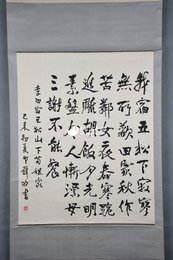 我宿五松下寂寥
無所歡田家秋作
苦鄰女夜舂寒跪
進雕胡飯月光明
素盤令人慚漂母
三謝不能餐
李白宿五松山下荀媼家
己未初夏書